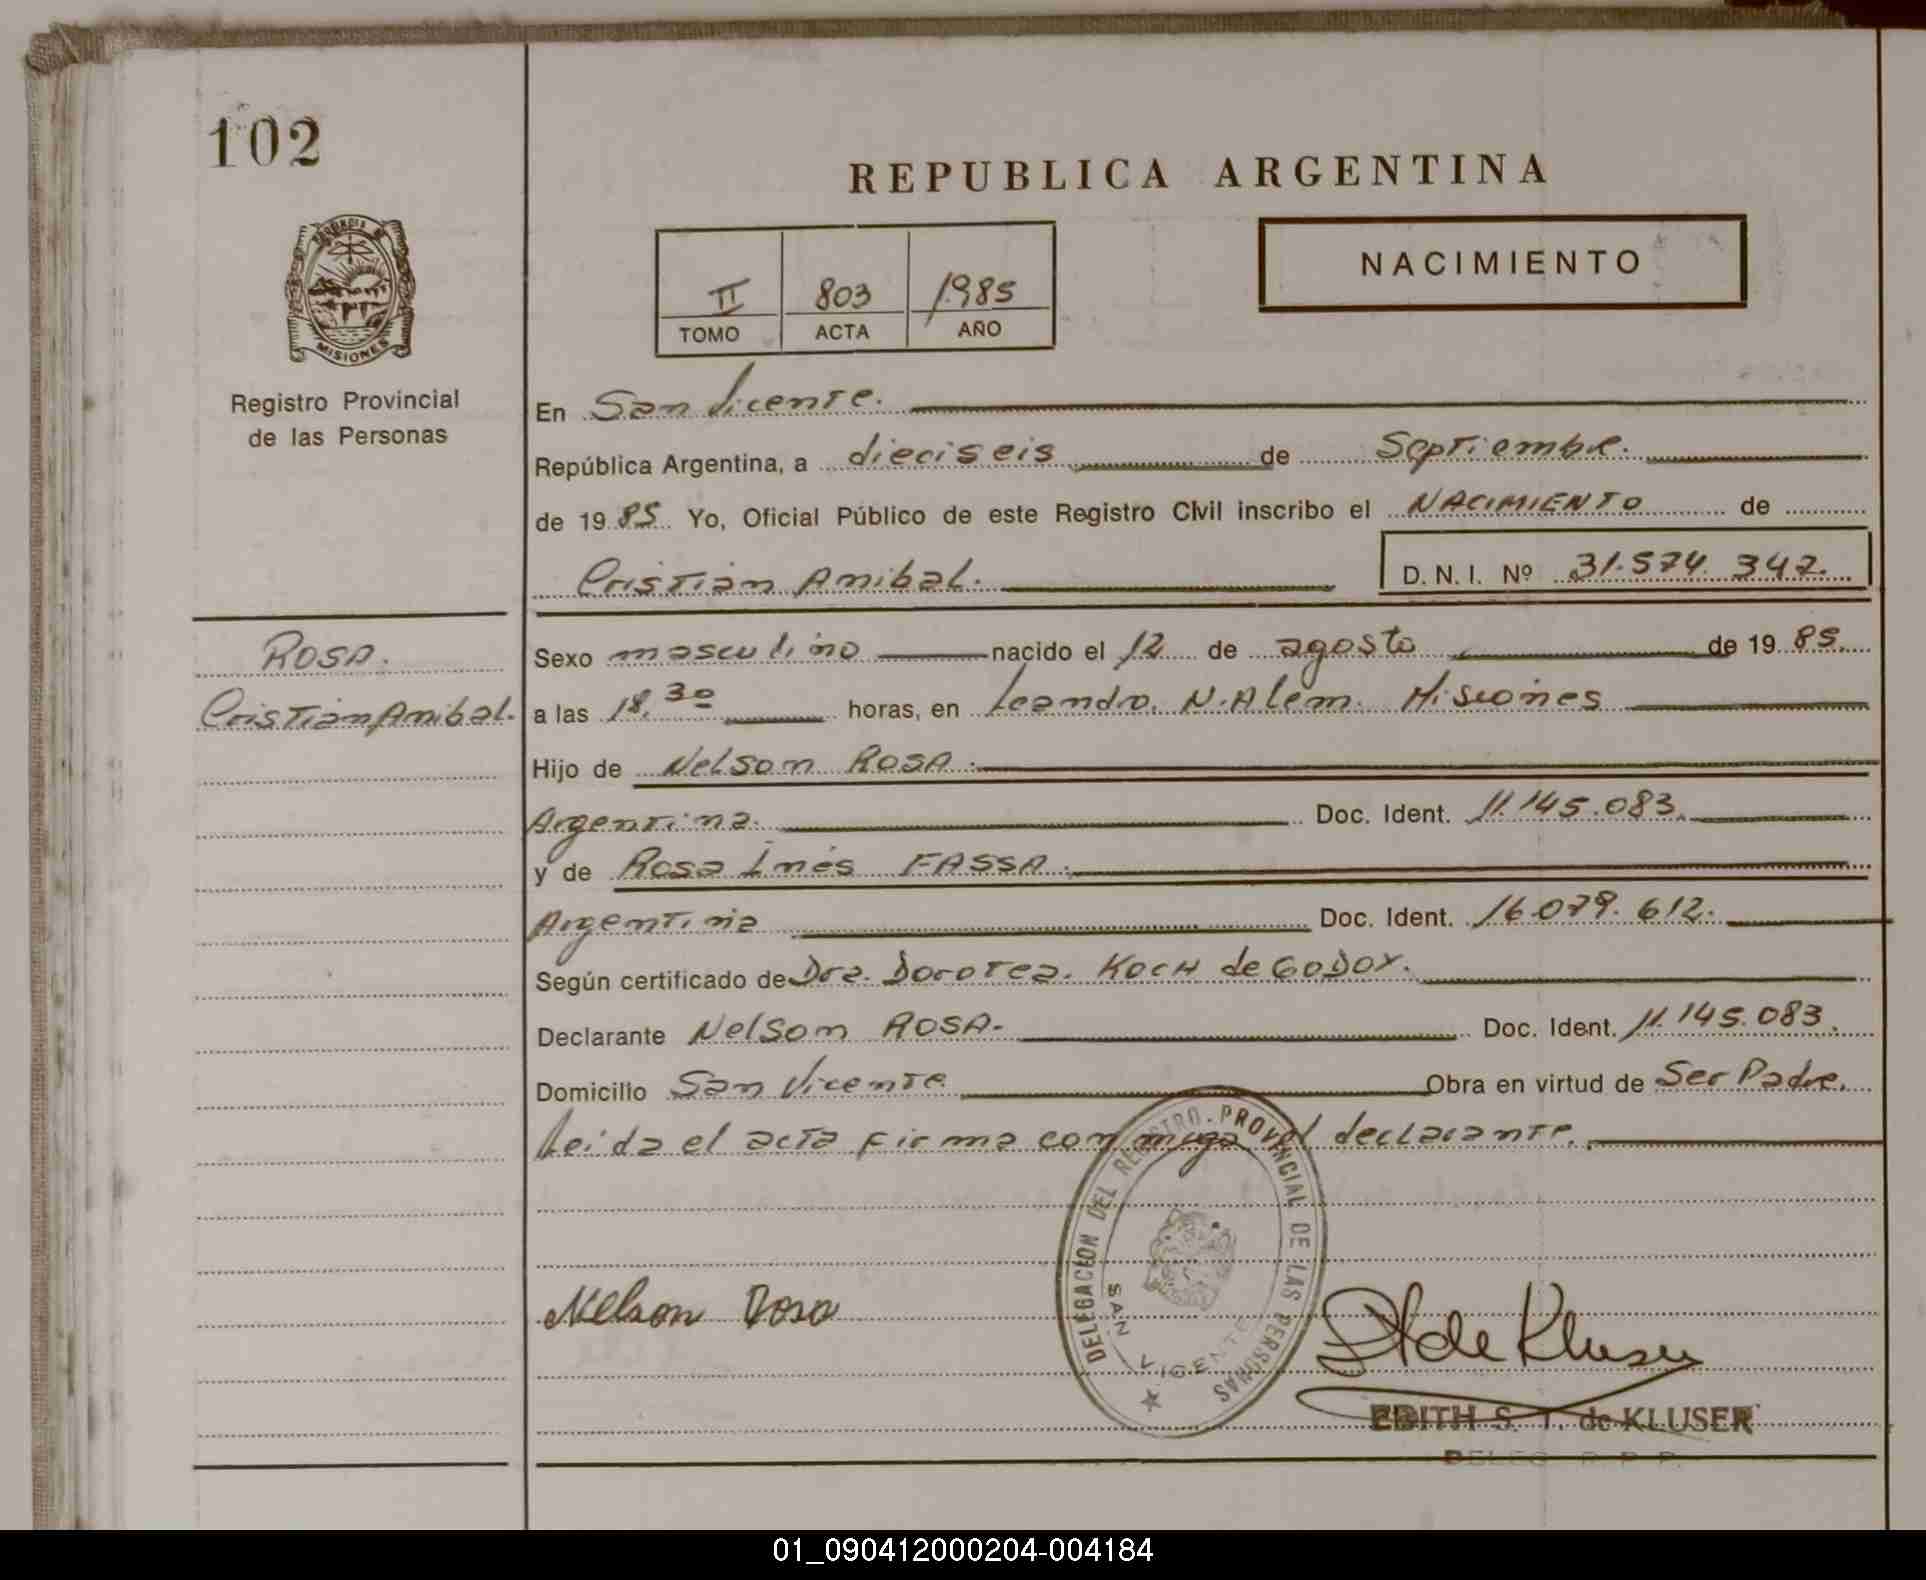 102
REPUBLICA ARGENTINA
NACIMIENTO
II 803 1985
TOMO ACTA AÑO
PROVINCIA DE
MISIONES
Registro Provincial
de las Personas
En San Vicente.
República Argentina, a dieciseis de Septiembre.
de 1985 Yo, Oficial Público de este Registro Civil inscribo el NACIMIENTO de
Cristian Anibal. D. N. I. Nº 31.574.347.
ROSA.
Cristian Anibal.
Sexo masculino nacido el 12 de agosto de 1985.
a las 18,30 horas, en Leandro. N. Alem. Misiones
Hijo de Nelson ROSA.
Argentina. Doc. Ident. 11.145.083.
y de Rosa Inés FASSA.
Argentina Doc. Ident. 16.079.612.
Según certificado de Dra. Dorotea. KOCH de GODOY.
Declarante Nelson ROSA. Doc. Ident. 11.145.083.
Domicilio San Vicente Obra en virtud de Ser Padre.
Leida el acta firma conmigo el declarante.
DELEGACION DEL REGISTRO PROVINCIAL DE LAS PERSONAS
SAN VICENTE
Nelson Rosa
de Kluser
EDITH S. T. de KLUSER
DELEG. R. P. P.
01_090412000204-004184